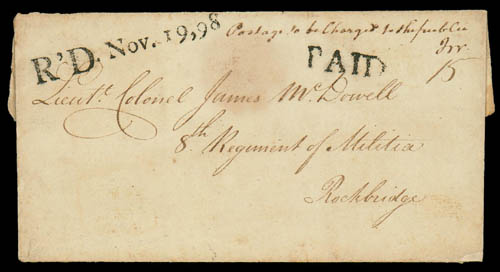 R'D. Nov. 19, 98
Postage to be Charged to the publice
PAID
15
Lieut. Colonel James McDowell
8th Regiment of Militia
Rockbridge